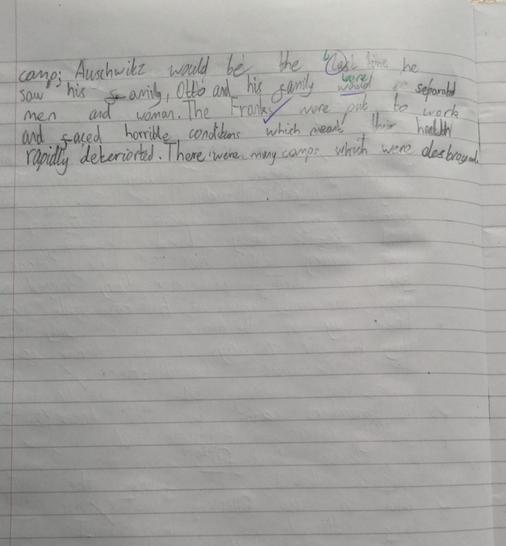 camp; Auschwitz would be the last time he
saw his family, Otto and his family were separated
men and woman. The Franks were put to work
and faced horrible conditions which meant their health
rapidly deteriorted. There were many camps which were destroyed.